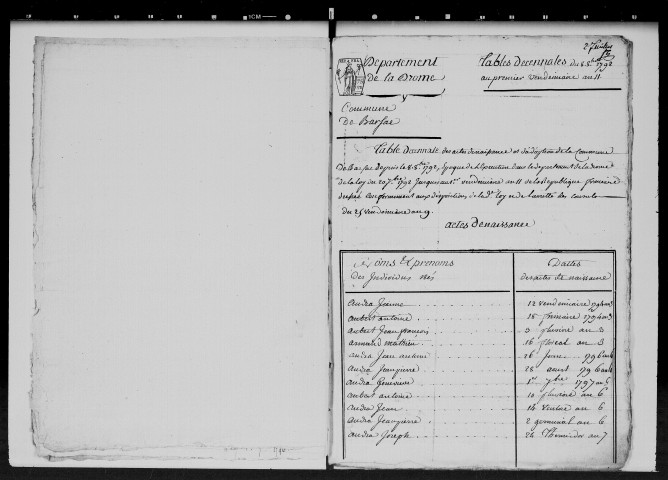 Departement
de la Drome
Tables Decennales du 8. 8bre 1792
au premier vendemiaire an 11
Commune
De Barsac
Table Decennale des actes de naissance et d'adoption de la Commune
De Barsac depuis le 8. 8bre 1792, Epoque de l'Execution dans le departement de la Drome
de la loy du 20 7bre 1792 Jusqu'au 1er vendemiaire an 11 de la Republique francaise
dressée Conformement aux dispositions de la de loy et de l'arretté des consuls
du 25 vendemiaire an 9.
actes de naissance
Noms Et prenoms
Des Individus Nés
Dattes
des actes de naissance
audra Jeanne 12 vendemiaire 1794 an 3
aubert antoine 18 frimaire 1794 an 3
aubert Jean francois 3 pluviose an 3
armand mathieu 16 floreal an 3
audra Jean antoine 26 1796 an 4
audra Jean pierre 28 aout 1796 an 4
audra Genevieve 1er 7bre 1797 an 5
aubert antoine 10 pluviose an 6
audra Jean 16 ventose an 6
audra Jean pierre 2 germinal an 6
audra Joseph 24 Thermidor an 7